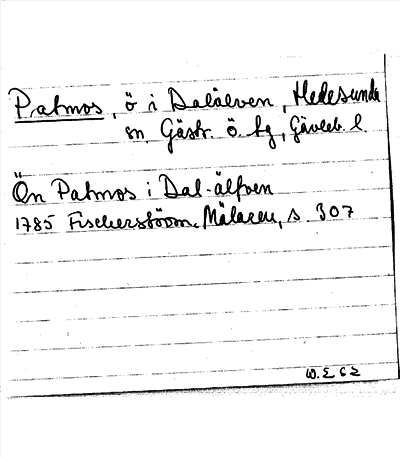 Patmos, ö i Dalälven, Hedesunda
sn, Gästr. ö. tg, Gävleb. l.
Ön Patmos i Dal-älfven
1785 Fischerström. Mälaren, s. 307
W.E 62